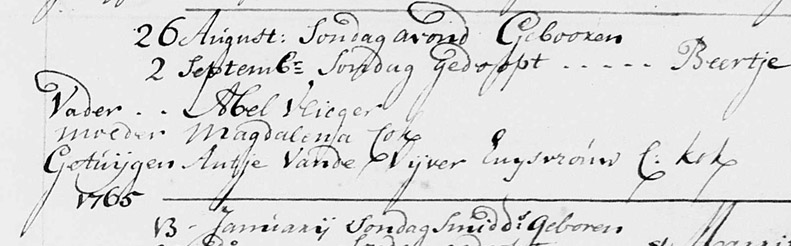 26 August: Sondag avond Geboren
2 Septemb: Sondag gedoopt ----- Beertje
Vader .. Abel Vlieger
moeder Magdalena Cok
Getuijgen Antje Vande Vijver Huysvrouw C: Kok
1765
13 - Januarij Sondag Smidds Geboren